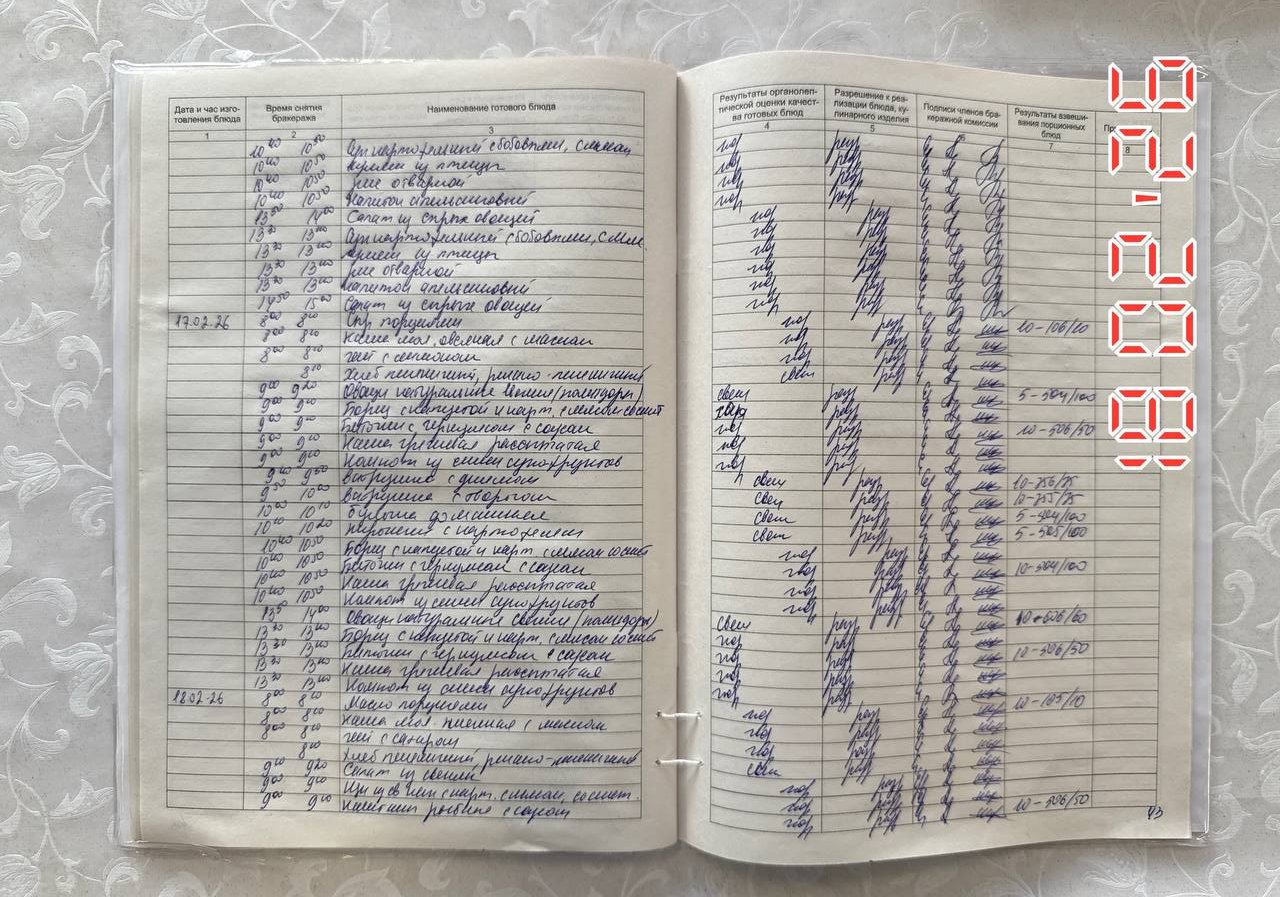 Дата и час изго-
товления блюда
Время снятия
бракеража
Наименование готового блюда
1
2
3
10 40 10 50 Суп картофельный с бобовыми, с мясом
10 40 10 50 из птицы
10 40 10 50 Рис отварной
10 40 10 50 Напиток апельсиновый
13 50 14 00 Салат из сырых овощей
13 30 13 40 Суп картофельный с бобовыми, с мяс.
13 30 13 40 из птицы
13 30 13 40 Рис отварной
13 30 13 40 Напиток апельсиновый
14 50 15 00 Салат из сырых овощей
17.02.26 8 00 8 10 Сыр порциями
8 00 8 10 Каша мол. овсяная с маслом
8 00 8 10 Чай с лимоном
8 10 Хлеб пшеничный, ржано-пшеничный
9 00 9 20 Овощи натуральные свежие (помидоры)
9 00 9 10 Борщ с капустой и карт. с мясом со смет
9 00 9 10 Биточки с соусом
9 00 9 10 Каша гречневая рассыпчатая
9 00 9 10 Компот из смеси сухофруктов
9 40 9 50 Ватрушка с
9 50 10 00 Ватрушка с творогом
10 00 10 10 домашняя
10 10 10 20 Пирожки с картофелем
10 40 10 50 Борщ с капустой и карт. с мясом со смет
10 40 10 50 Биточки с соусом
10 40 10 50 Каша гречневая рассыпчатая
10 40 10 50 Компот из смеси сухофруктов
13 50 14 00 Овощи натуральные свежие (помидоры)
13 30 13 40 Борщ с капустой и карт. с мясом со смет
13 30 13 40 Биточки с соусом
13 30 13 40 Каша гречневая рассыпчатая
13 30 13 40 Компот из смеси сухофруктов
18.02.26 8 00 8 10 Масло порциями
8 00 8 10 Каша мол. пшенная с маслом
8 00 8 10 Чай с сахаром
8 10 Хлеб пшеничный, ржано-пшеничный
9 10 9 20 Салат из свеклы
9 00 9 10 Щи из св. кап с карт. с мясом, со смет.
9 00 9 10 с соусом
Результаты органолеп-
тической оценки качест-
ва готовых блюд
Разрешение к реа-
лизации блюда, ку-
линарного изделия
Подписи членов бра-
керажной комиссии
Результаты взвеши-
вания порционных
блюд
4
5
7
8
хор разр
хор разр
хор разр
хор разр
хор разр
хор разр
хор разр
хор разр
хор разр
хор разр
хор разр 10-106/10
хор разр
хор разр
свеж разр
свеж разр 5-504/100
хор разр
хор разр 10-506/50
хор разр
хор разр
свеж разр 10-756/75
свеж разр 10-755/75
свеж разр 5-504/100
свеж разр 5-505/100
хор разр
хор разр 10-504/100
хор разр
хор разр
свеж разр
хор разр
хор разр 10-506/50
хор разр
хор разр
хор разр 10-105/10
хор разр
хор разр
свеж разр
хор разр
хор разр
хор разр 10-506/50
43
18.02.'26